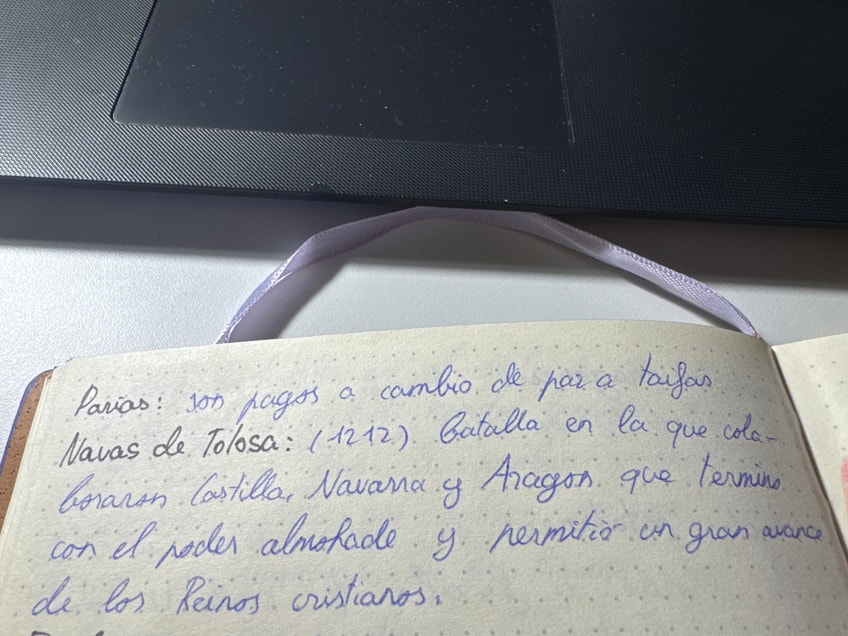 Parias: son pagos a cambio de paz a taifas
Navas de Tolosa: (1212) Batalla en la que cola-
boraron Castilla, Navarra y Aragon que termino
con el poder almohade y permitió un gran avance
de los Reinos cristianos.